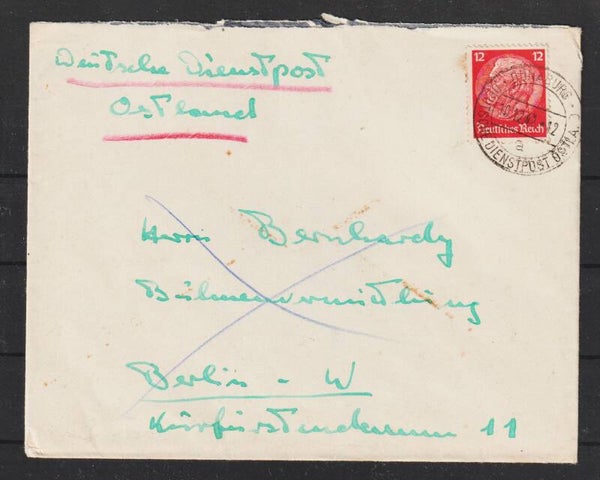 Deutsche Dienstpost
Ostland
12 12
Deutsches Reich
DÜNABURG
12
a
DIENSTPOST OSTLAND
Herrn Bernhardy
Bühnenvermittlung
Berlin - W
Kurfürstendamm 11